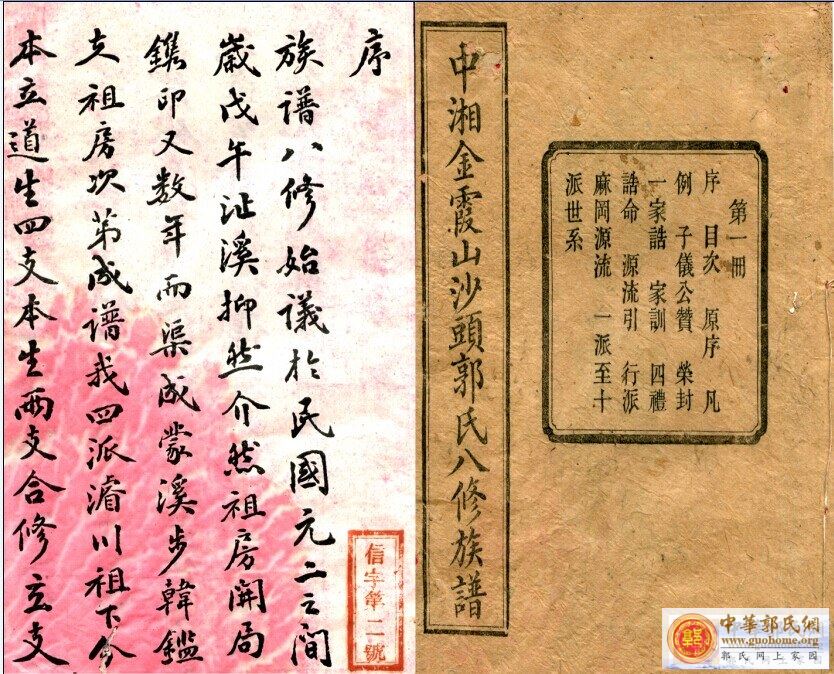 中湘金霞山沙頭郭氏八修族譜
第一冊
序 目次 原序 凡
例 子儀公贊 榮封
一家誥 家訓 四禮
誥命 源流引 行派
麻岡源流 一派至十
派世系
序
族譜八修始議於民國元二之間
歲戊午沚溪抑然介然祖房開局
鐫印又数年而渠成蒙溪步韓鑑
支祖房次第成譜我四派濬川祖下分
本立道生四支本生兩支合修立支
信字第二號
中華郭氏網
www.guohome.org
郭氏网上家园